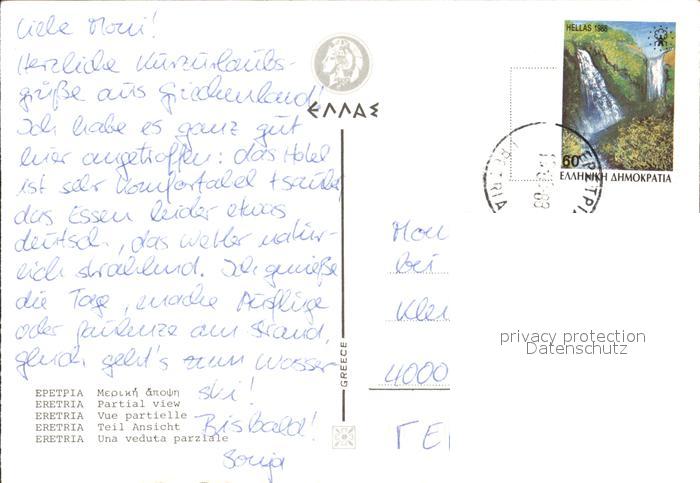 Liebe Moni!
Herzliche Kurzurlaubs-
grüße aus Griechenland!
Ich habe es ganz gut
hier angetroffen: das Hotel
ist sehr komfortabel + sauber,
das Essen leider etwas
deutsch, das Wetter natür-
lich strahlend. Ich genieße
die Tage, mache Ausflüge
oder faulenze am Strand,
gleich geht's zum Wasser-
ski!
Bis bald!
Sonja
ΕΡΕΤΡΙΑ Μερική άποψη
ERETRIA Partial view
ERETRIA Vue partielle
ERETRIA Teil Ansicht
ERETRIA Una veduta parziale
ΕΛΛΑΣ
GREECE
HELLAS 1988
60
ΕΛΛΗΝΙΚΗ ΔΗΜΟΚΡΑΤΙΑ
ΕΡΕΤΡΙΑ
ERETRIA
bei
4000
privacy protection
Datenschutz